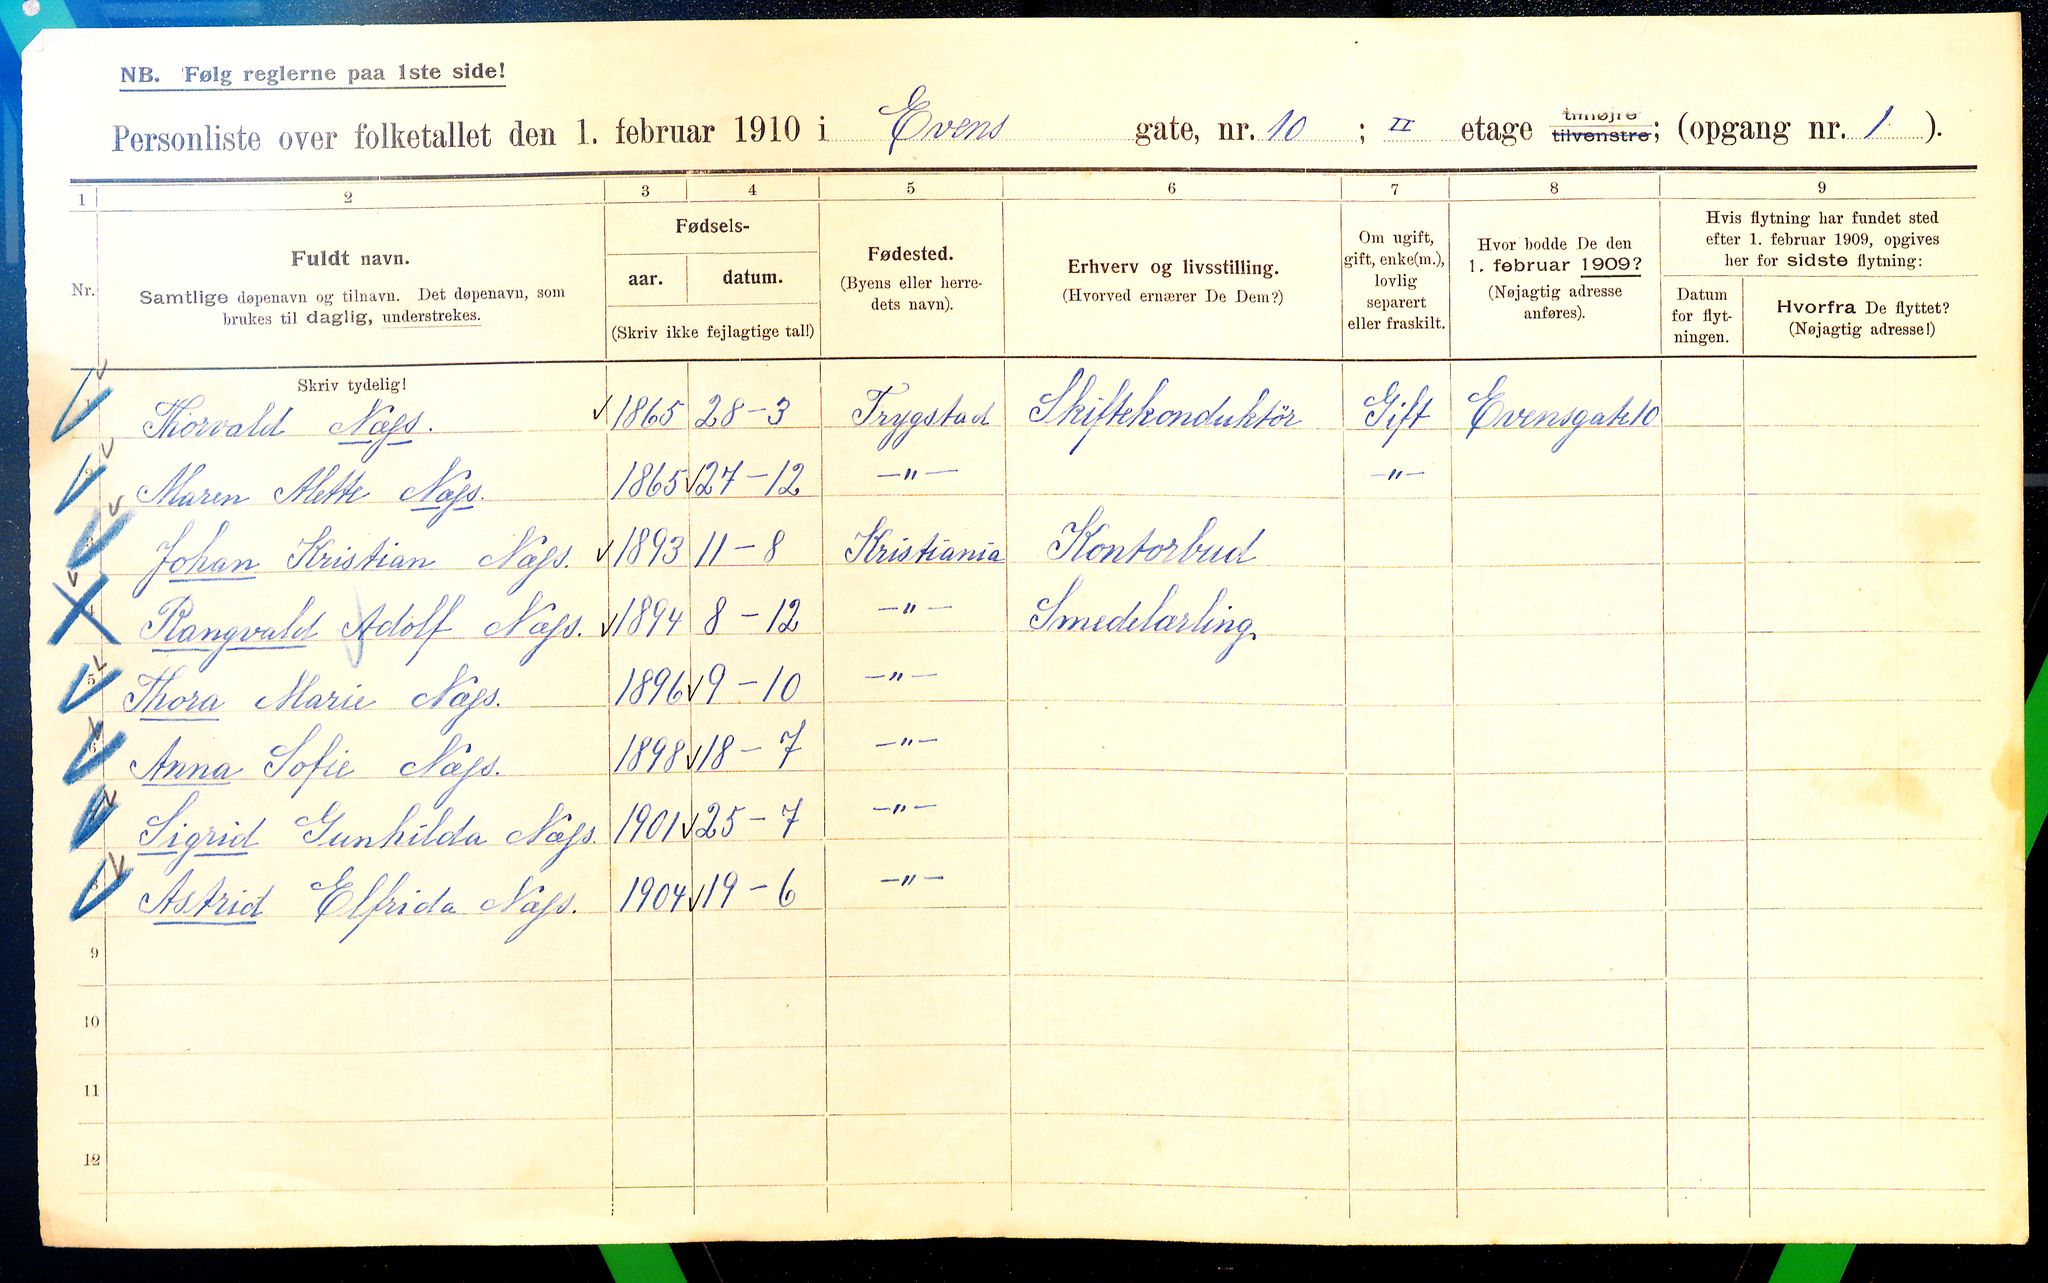 NB. Følg reglerne paa 1ste side!
Personliste over folketallet den 1. februar 1910 i Evens gate, nr. 10 ; II etage tilhøjre tilvenstre; (opgang nr. 1 ).
1 2 3 4 5 6 7 8 9
Nr.
Fuldt navn.
Samtlige døpenavn og tilnavn. Det døpenavn, som
brukes til daglig, understrekes.
Fødsels-
aar. datum.
(Skriv ikke fejlagtige tal!)
Fødested.
(Byens eller herre-
dets navn).
Erhverv og livsstilling.
(Hvorved ernærer De Dem?)
Om ugift,
gift, enke(m.),
lovlig
separert
eller fraskilt.
Hvor bodde De den
1. februar 1909?
(Nøjagtig adresse
anføres).
Hvis flytning har fundet sted
efter 1. februar 1909, opgives
her for sidste flytning:
Datum
for flyt-
ningen.
Hvorfra De flyttet?
(Nøjagtig adresse!)
Skriv tydelig!
1 Thorvald Næss. 1865 28-3 Trygstad Skiftekonduktör Gift Evensgate 10
2 Maren Alette Næss. 1865 27-12 -"- -"-
3 Johan Kristian Næss. 1893 11-8 Kristiania Kontorbud
4 Rangvald Adolf Næss. 1894 8-12 -"- Smedelærling
5 Thora Marie Næss. 1896 9-10 -"-
6 Anna Sofie Næss. 1898 18-7 -"-
Sigrid Gunhilda Næss. 1901 25-7 -"-
8 Astrid Elfrida Næss. 1904 19-6 -"-
9
10
11
12